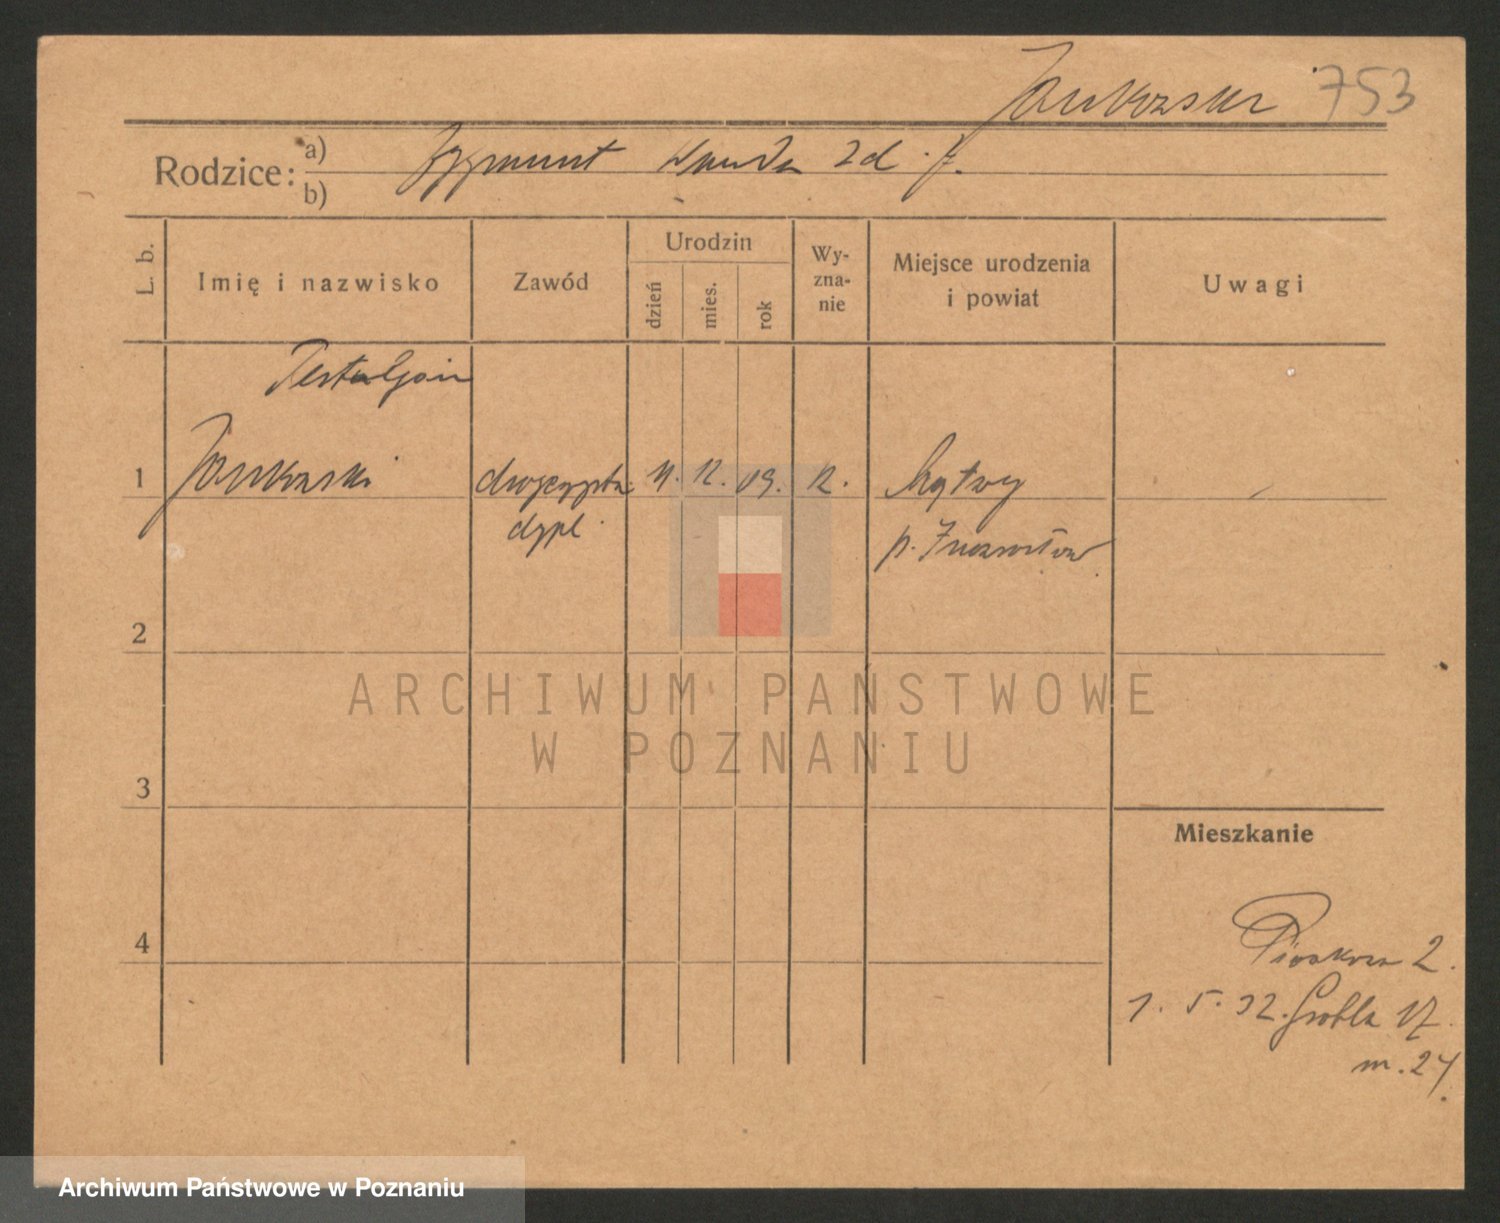 Jankowski 753
Rodzice: a) Zygmunt Wanda zd. J.
b)
L. b.
Imię i nazwisko
Zawód
Urodzin
dzień
mies.
rok
Wy-
zna-
nie
Miejsce urodzenia
i powiat
Uwagi
1 Jankowski drogerzysta 12. 09. Mątwy
dypl. p. Inowrocław
2
3
4
Mieszkanie
Piaskowa 2.
1. 5. 32. Grobla 17
m. 24.
ARCHIWUM PAŃSTWOWE
W POZNANIU
Archiwum Państwowe w Poznaniu